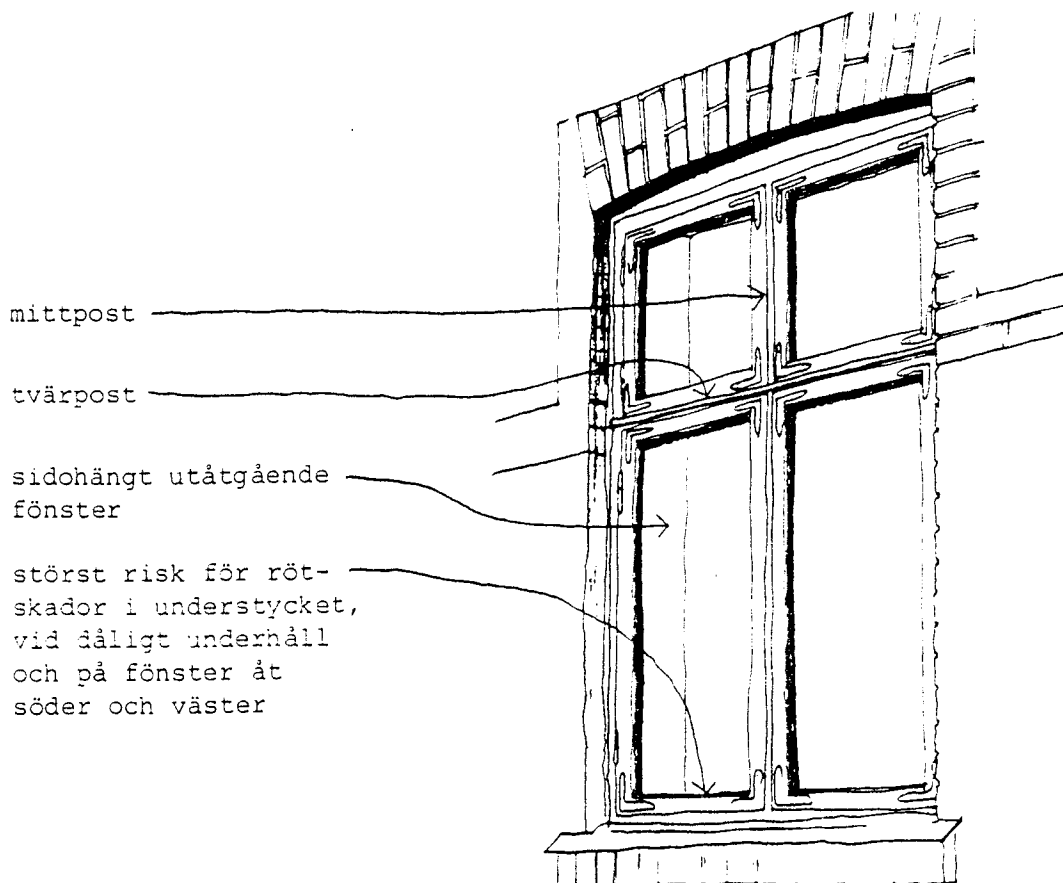 mittpost
tvärpost
sidohängt utåtgående
fönster
störst risk för röt-
skador i understycket,
vid dåligt underhåll
och på fönster åt
söder och väster